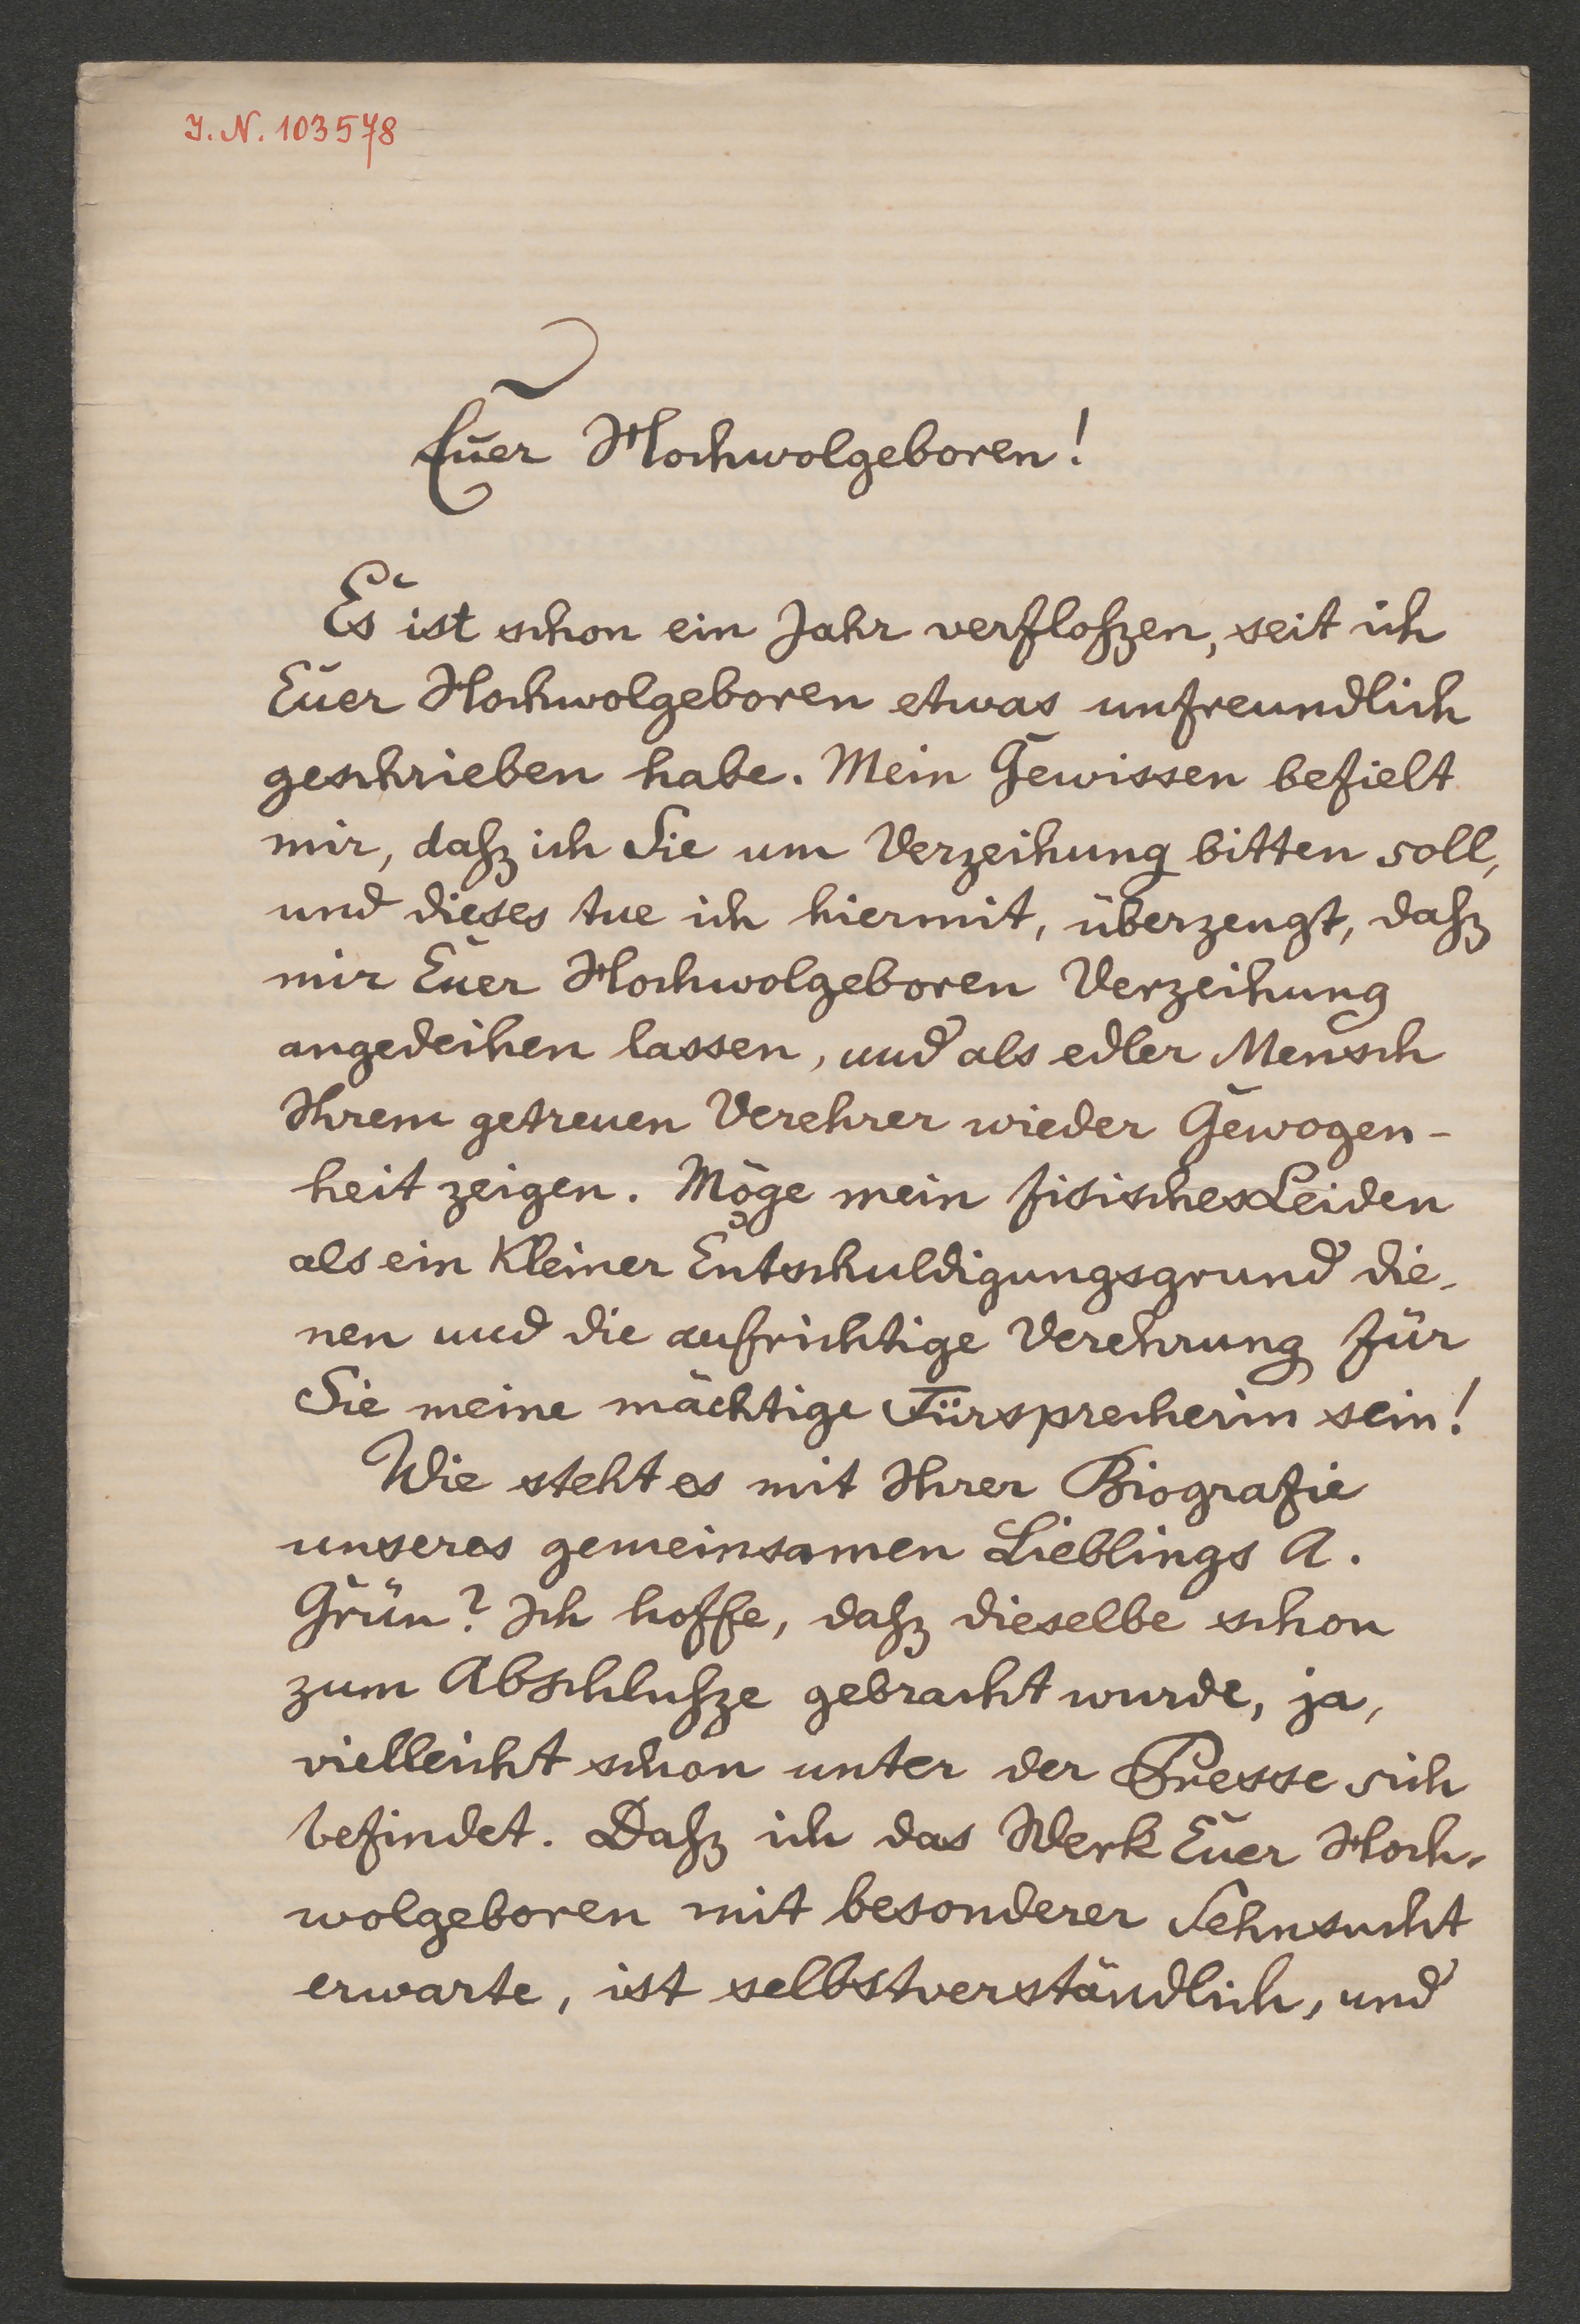 J. N. 103578
Euer Hochwolgeboren!
Es ist schon ein Jahr verfloßen, seit ich
Euer Hochwolgeboren etwas unfreundlich
geschrieben habe. Mein Gewissen befielt
mir, daß ich Sie um Verzeihung bitten soll,
und dieses tue ich hiermit, überzeugt, daß
mir Euer Hochwolgeboren Verzeihung
angedeihen lassen, und als edler Mensch
Ihrem getreuen Verehrer wieder Gewogen-
heit zeigen. Möge mein fisisches Leiden
als ein kleiner Entschuldigungsgrund die-
nen und die aufrichtige Verehrung für
Sie meine mächtige Fürsprecherin sein!
Wie steht es mit Ihrer Biografie
unseres gemeinsamen Lieblings A.
Grün? Ich hoffe, daß dieselbe schon
zum Abschluße gebracht wurde, ja,
vielleicht schon unter der Presse sich
befindet. Daß ich das Werk Euer Hoch-
wolgeboren mit besonderer Sehnsucht
erwarte, ist selbstverständlich, und